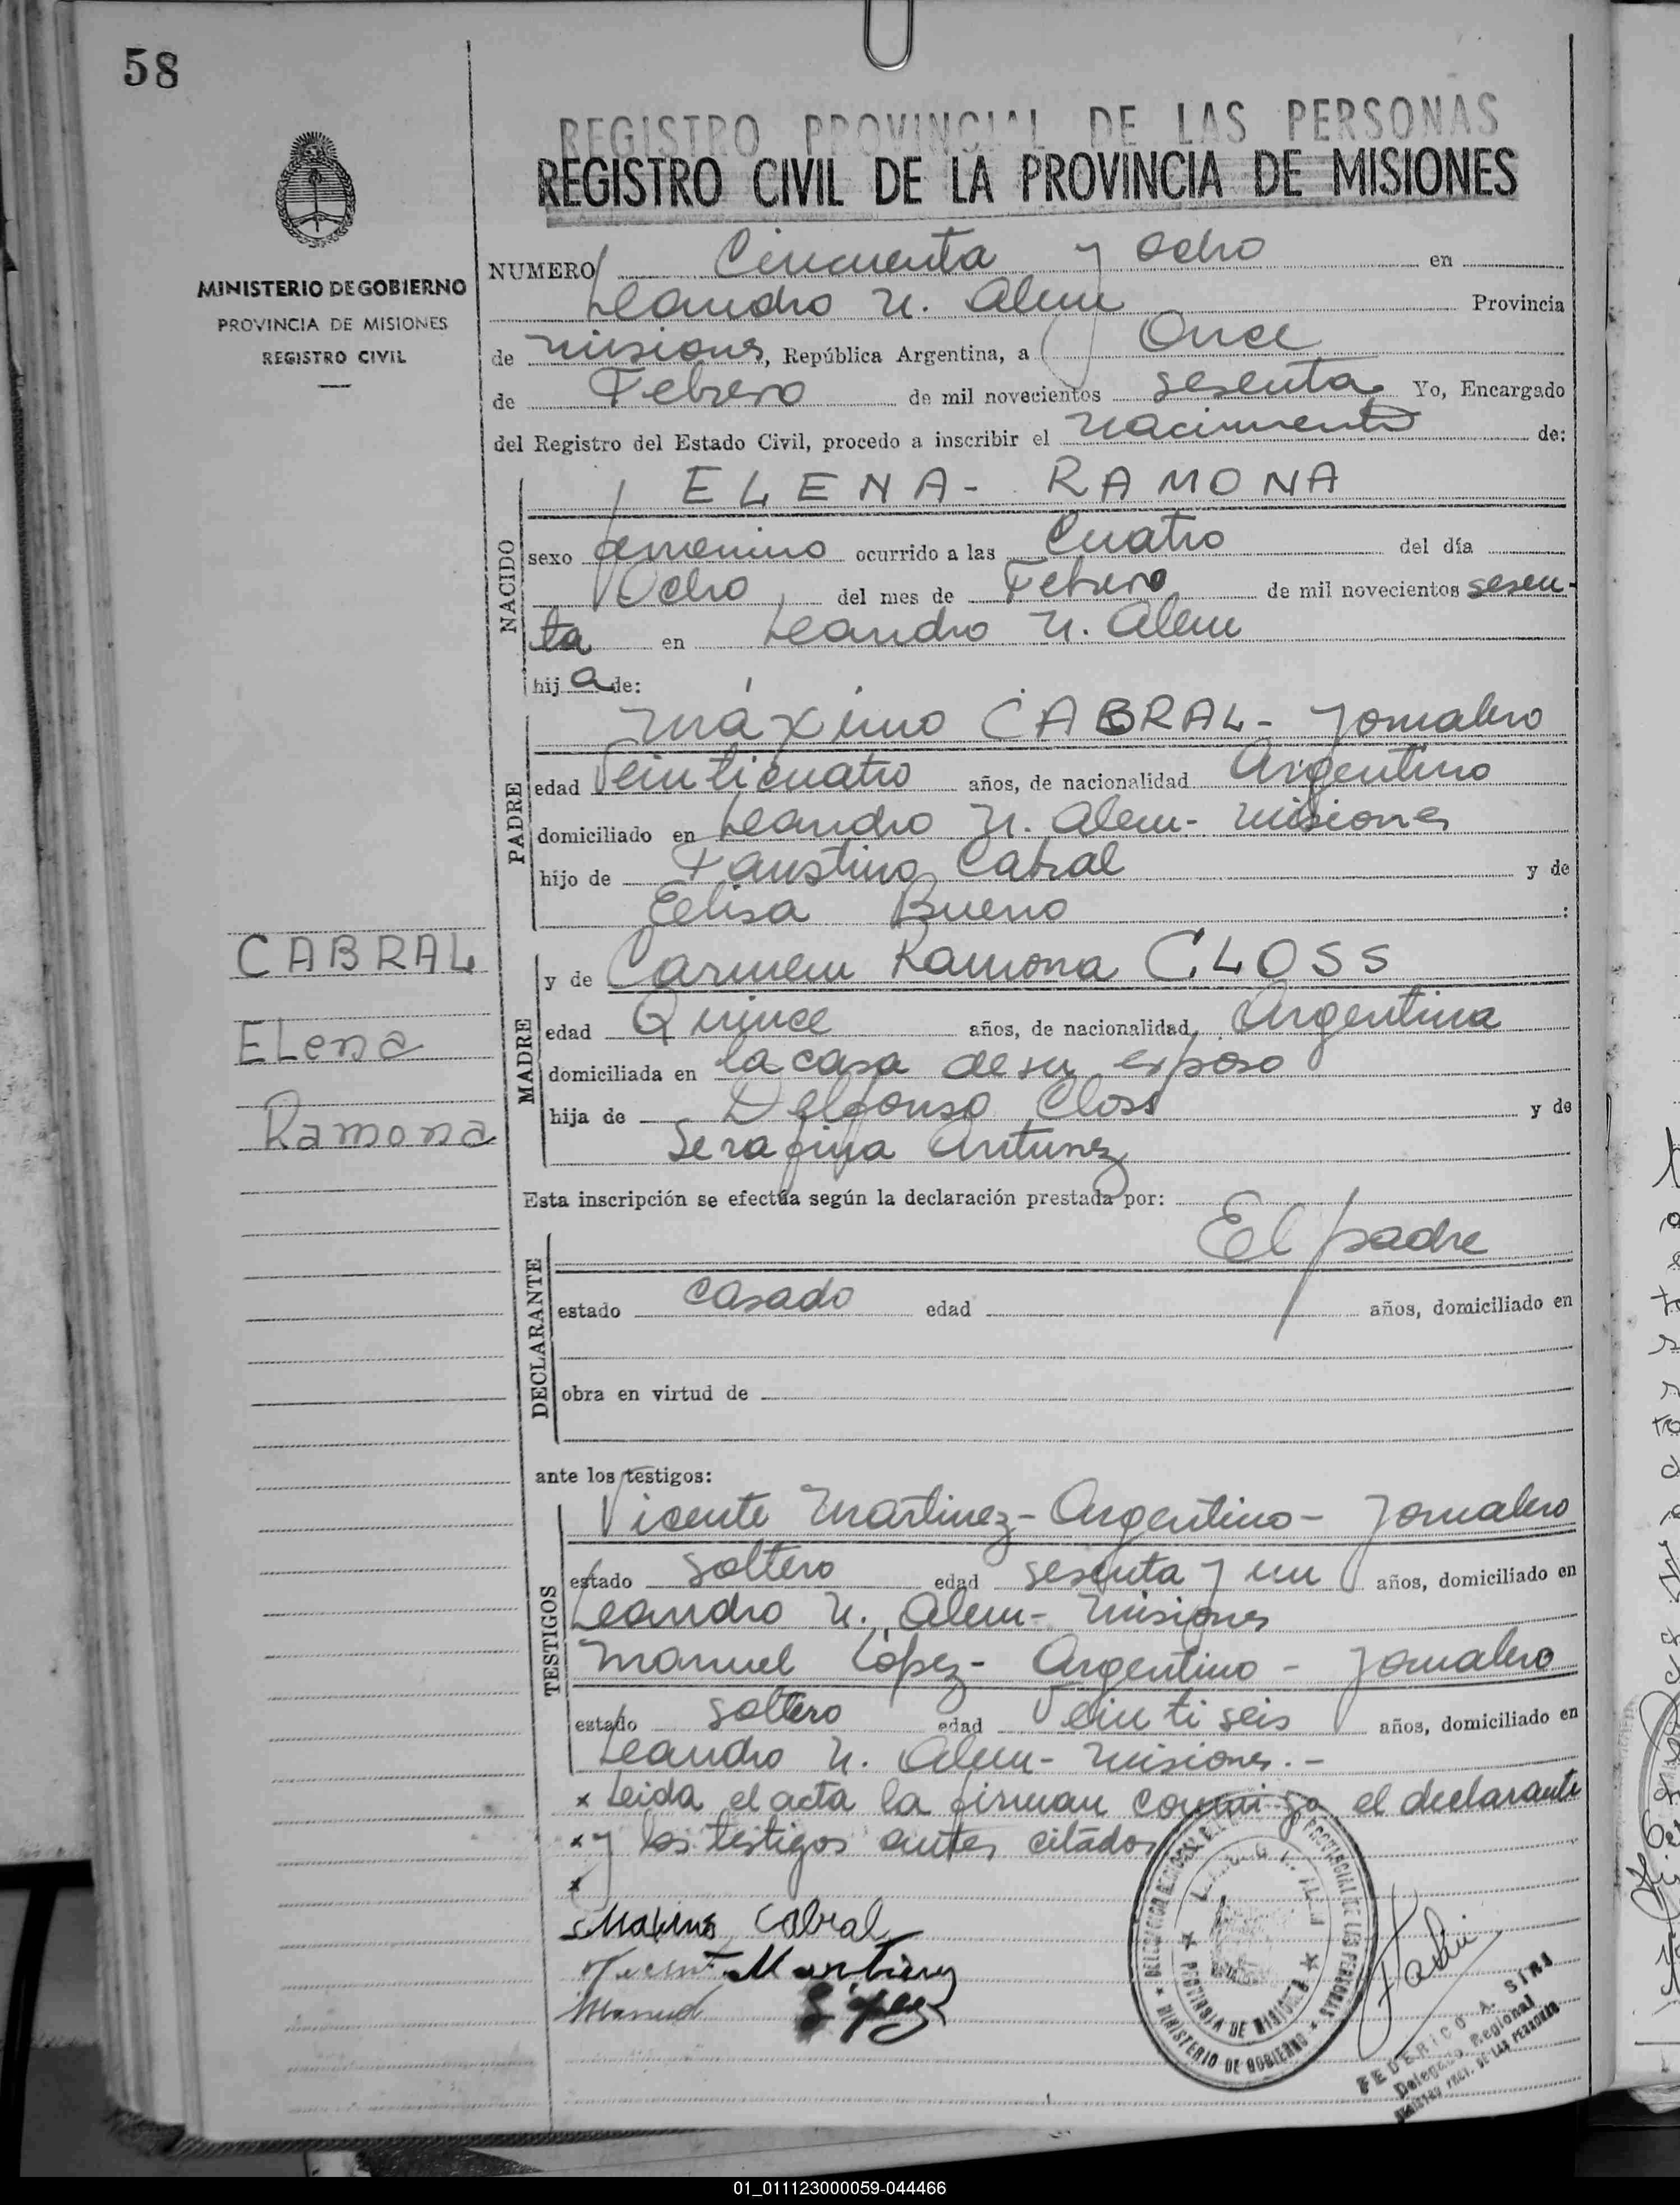 58
REGISTRO PROVINCIAL DE LAS PERSONAS
REGISTRO CIVIL DE LA PROVINCIA DE MISIONES
MINISTERIO DE GOBIERNO
PROVINCIA DE MISIONES
REGISTRO CIVIL
NUMERO Cincuenta y Ocho en
Leandro N. Alem Provincia
de Misiones, República Argentina, a Once
de Febrero de mil novecientos sesenta Yo, Encargado
del Registro del Estado Civil, procedo a inscribir el nacimiento de:
NACIDO
ELENA - RAMONA
sexo femenino ocurrido a las Cuatro del día
Ocho del mes de Febrero de mil novecientos sesen-
ta en Leandro N. Alem
hija de:
PADRE
Máximo CABRAL - Jornalero
edad Veinticuatro años, de nacionalidad Argentino
domiciliado en Leandro N. Alem - Misiones
hijo de Faustino Cabral y de
Elisa Bueno :
CABRAL
Elena
Ramona
MADRE
y de Carmen Ramona CLOSS
edad Quince años, de nacionalidad Argentina
domiciliada en la casa de su esposo
hija de Delfonso Closs y de
Serafina Antunez
Esta inscripción se efectúa según la declaración prestada por:
DECLARANTE
El padre
estado casado edad años, domiciliado en
obra en virtud de
ante los testigos:
TESTIGOS
Vicente Martinez - Argentino - Jornalero
estado soltero edad sesenta y un años, domiciliado en
Leandro N. Alem - Misiones
Manuel López - Argentino - Jornalero
estado soltero edad Veintiseis años, domiciliado en
Leandro N. Alem - Misiones. -
x Leida el acta la firman conmigo el declarante
x y los testigos antes citados
x
Maximo Cabral
Vicente Martinez
Manuel López
PROVINCIAL DE LAS PERSONAS
PROVINCIA DE MISIONES
MINISTERIO DE GOBIERNO
FEDERICO A. SIRI
Delegado Regional
DE LAS PERSONAS
01_011123000059-044466